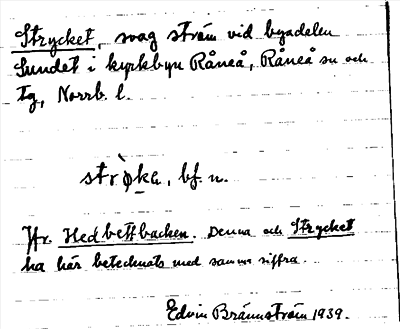 Strycket, svag ström vid byadelen
Sundet i kyrkbyn Råneå, Råneå sn och
tg, Norrb. l.
strỳka, bf. n.
Jfr. Hedbettbacken. Denna och Strycket
ha här betecknats med samma siffra.
Edvin Brännström 1939.